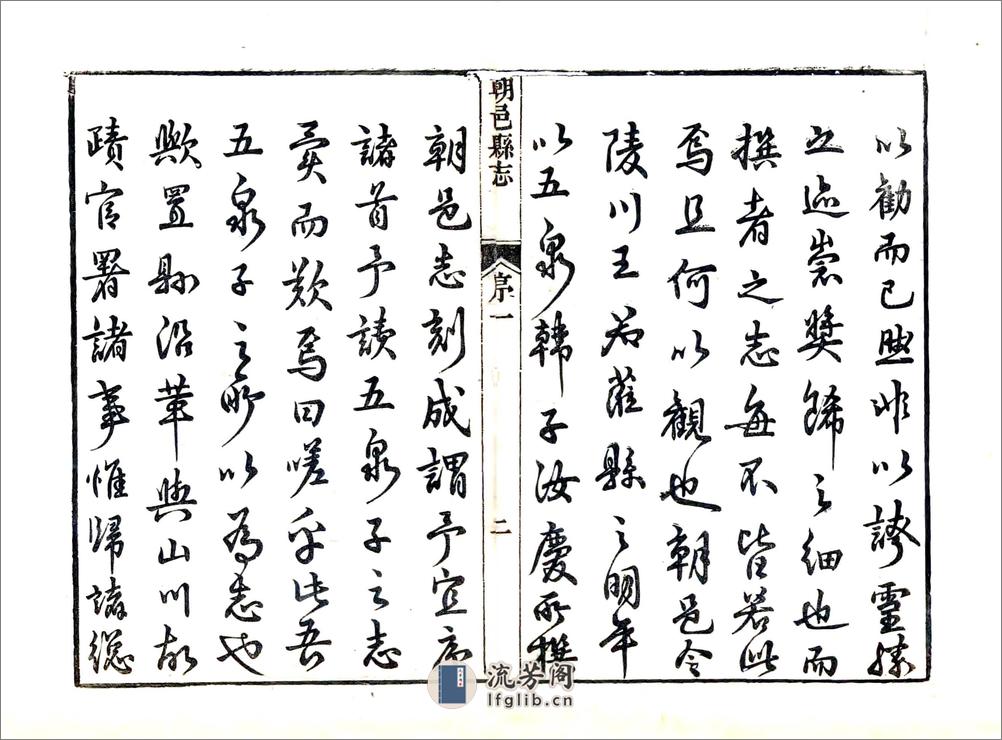 以勸而已然非以誇靈勝
之迹崇獎飾之細也而
撰者之志每不皆若此
焉且何以觀也朝邑令
陵川王君蒞縣之明年
以五泉韓子汝慶所撰
朝邑縣志
序一
二
朝邑志刻成謂予宜序
諸首予讀五泉子之志
竟而歎焉曰嗟乎此吾
五泉子之所以為志也
歟置縣沿革與山川故
蹟官署諸事惟歸諸總
流芳阁
lfglib.cn